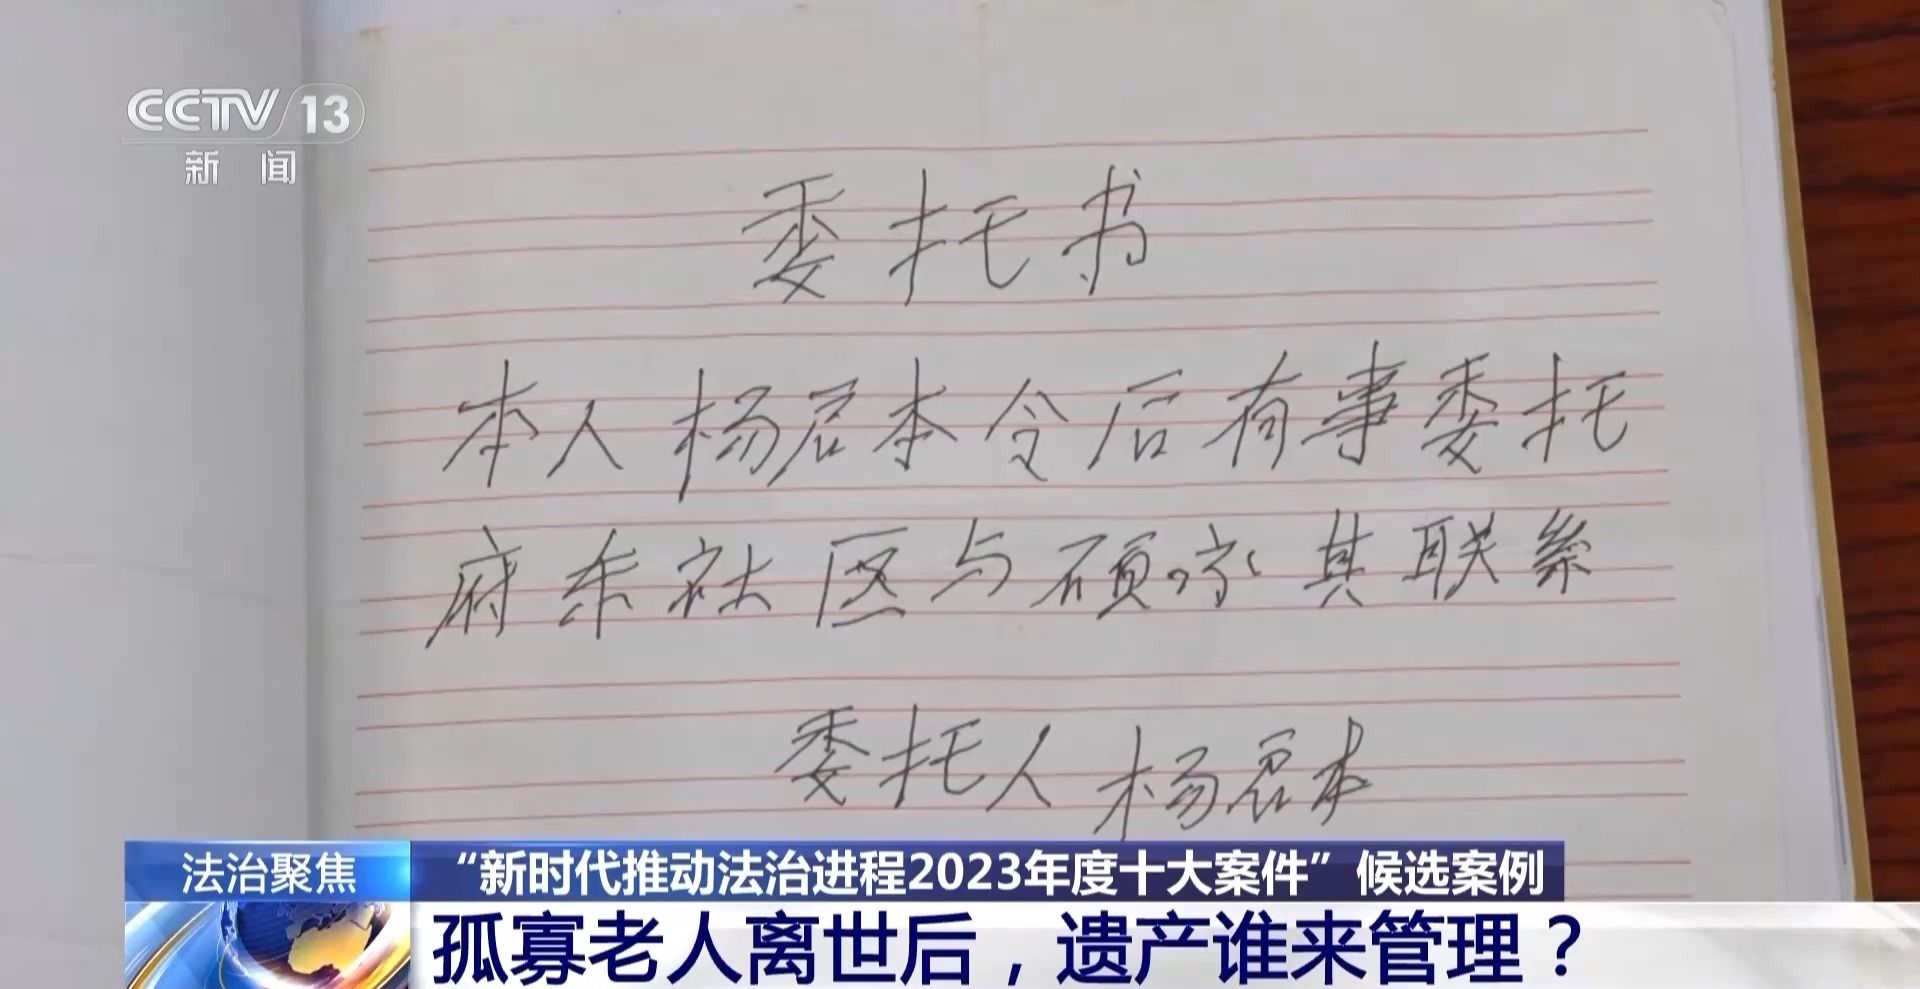 CCTV 13
新闻
委托书
本人杨君本今后有事委托
府东社区与硕永其联系
委托人 杨君本
法治聚焦
“新时代推动法治进程2023年度十大案件”候选案例
孤寡老人离世后，遗产谁来管理？